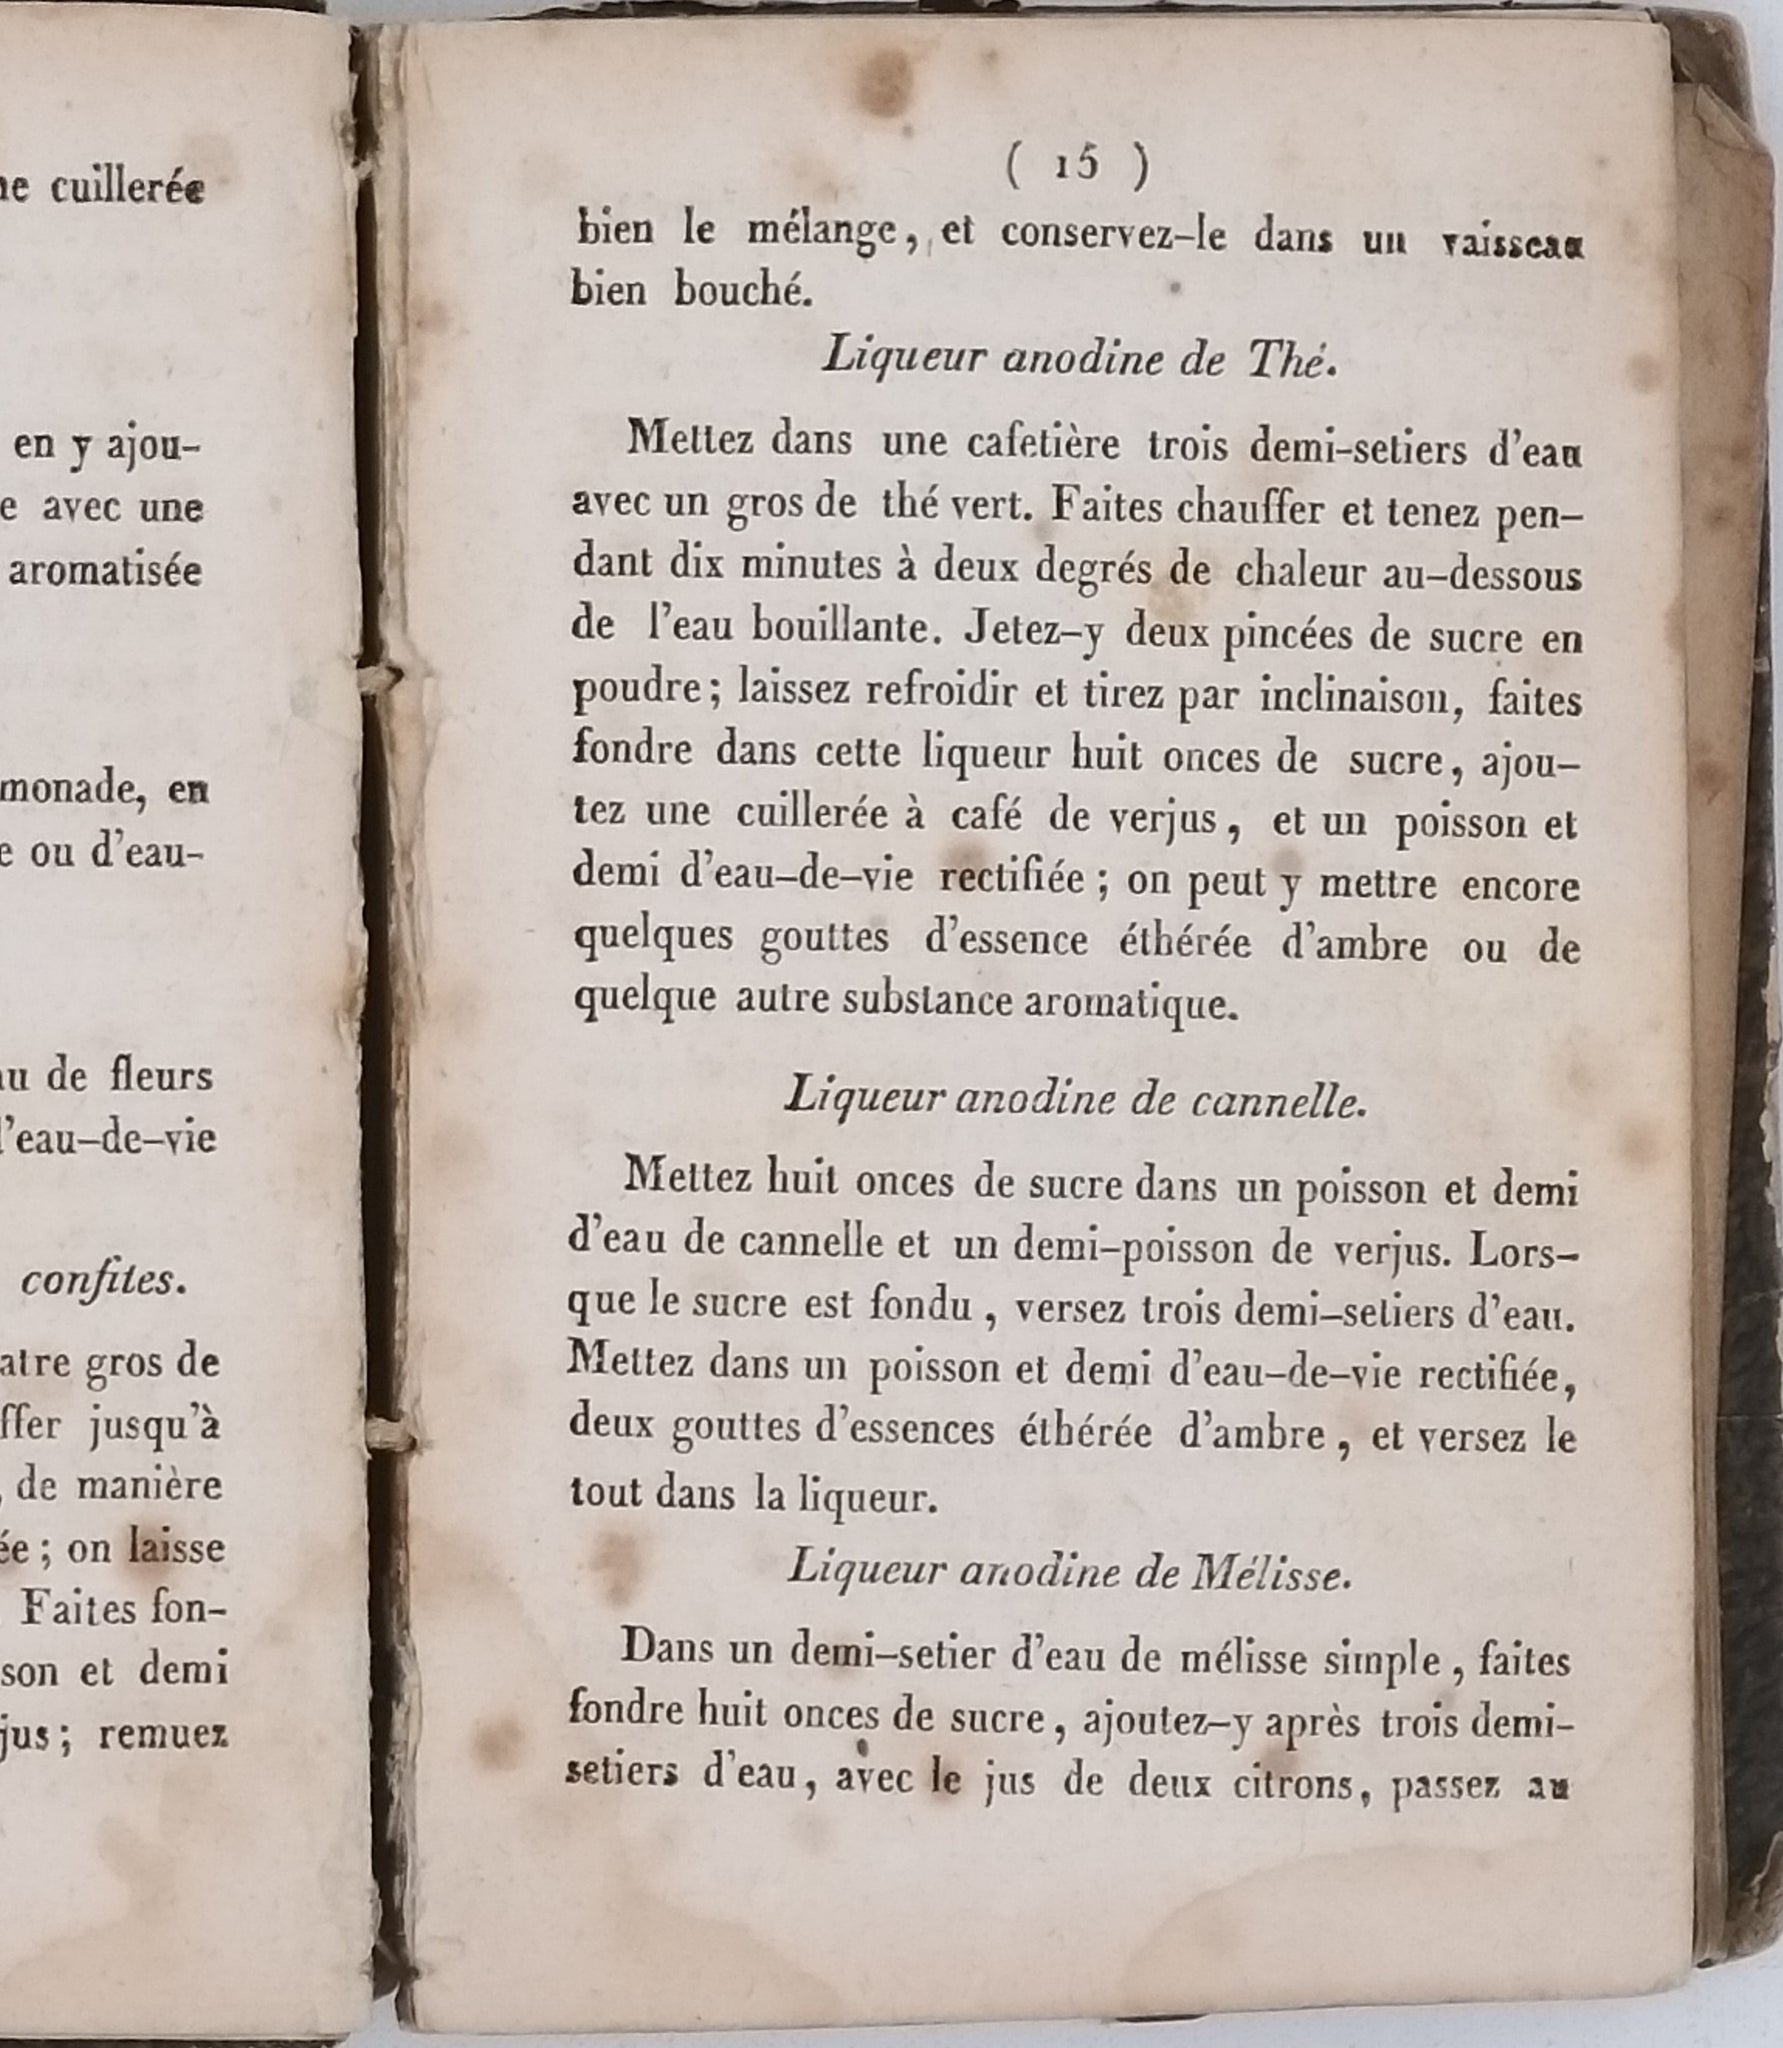 cuillerée
en y ajou-
avec une
aromatisée
monade, en
ou d'eau-
de fleurs
d'eau-de-vie
confites.
gros de
jusqu'à
de manière
on laisse
Faites fon-
et demi
remuez
( 15 )
bien le mélange, et conservez-le dans un vaisseau
bien bouché.
Liqueur anodine de Thé.
Mettez dans une cafetière trois demi-setiers d'eau
avec un gros de thé vert. Faites chauffer et tenez pen-
dant dix minutes à deux degrés de chaleur au-dessous
de l'eau bouillante. Jetez-y deux pincées de sucre en
poudre; laissez refroidir et tirez par inclinaison, faites
fondre dans cette liqueur huit onces de sucre, ajou-
tez une cuillerée à café de verjus, et un poisson et
demi d'eau-de-vie rectifiée; on peut y mettre encore
quelques gouttes d'essence éthérée d'ambre ou de
quelque autre substance aromatique.
Liqueur anodine de cannelle.
Mettez huit onces de sucre dans un poisson et demi
d'eau de cannelle et un demi-poisson de verjus. Lors-
que le sucre est fondu, versez trois demi-setiers d'eau.
Mettez dans un poisson et demi d'eau-de-vie rectifiée,
deux gouttes d'essences éthérée d'ambre, et versez le
tout dans la liqueur.
Liqueur anodine de Mélisse.
Dans un demi-setier d'eau de mélisse simple, faites
fondre huit onces de sucre, ajoutez-y après trois demi-
setiers d'eau, avec le jus de deux citrons, passez au